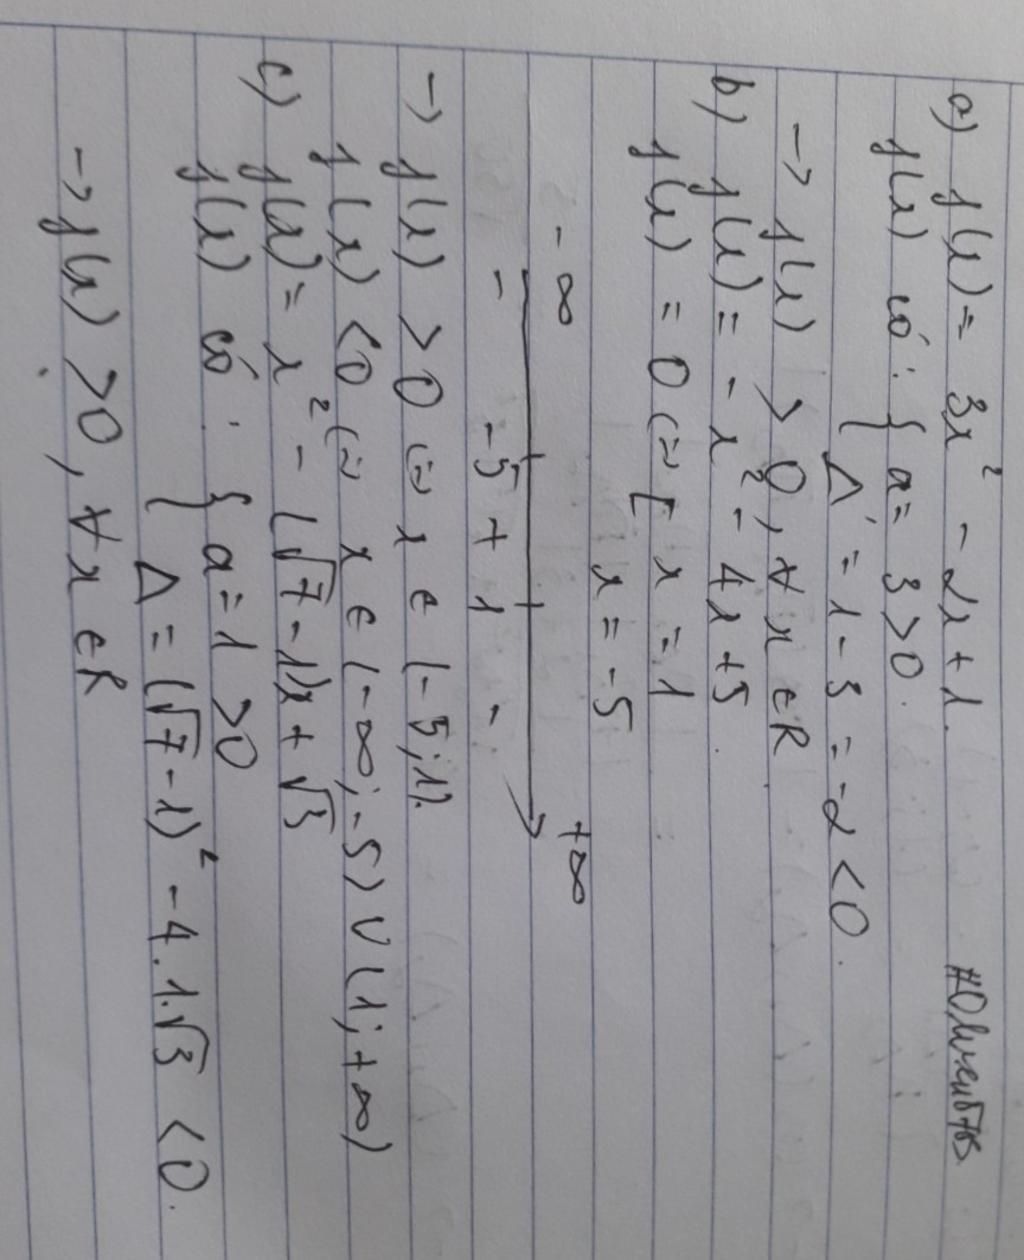 a) f(x) = 3x² - 2x + 1.
f(x) có: { a = 3 > 0.
Δ' = 1 - 3 = -2 < 0.
→ f(x) > 0, ∀x ∈ R
b) f(x) = -x² - 4x + 5.
f(x) = 0 (=) [ x = 1
x = -5
-∞ +∞
- -5 + 1 -
→ f(x) > 0 (=) x ∈ (-5; 1).
f(x) < 0 (=) x ∈ (-∞; -5) ∪ (1; +∞)
c) f(x) = x² - (√7 - 1)x + √3
f(x) có: { a = 1 > 0
Δ = (√7 - 1)² - 4.1.√3 < 0.
→ f(x) > 0, ∀x ∈ R